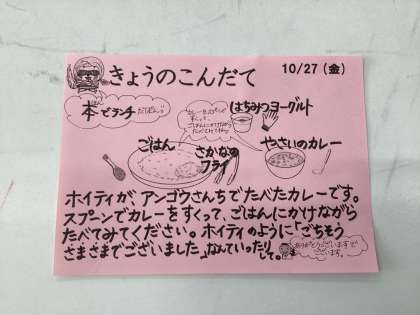 きょうのこんだて
10/27 (金)
本でランチ
はちみつヨーグルト
ごはん
さかなの
フライ
やさいのカレー
ホイティが、アンゴウさんちでたべたカレーです。
スプーンでカレーをすくって、ごはんにかけながら
たべてみてください。ホイティのように「ごちそう
さまさまでございました」なんていったりして。
ありがとうございますで
ございます。